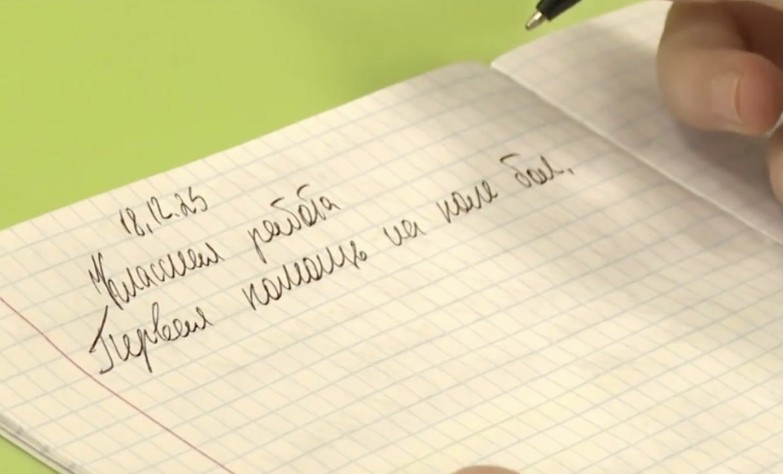 18.12.25
Классная работа
Первая помощь на поле боя.